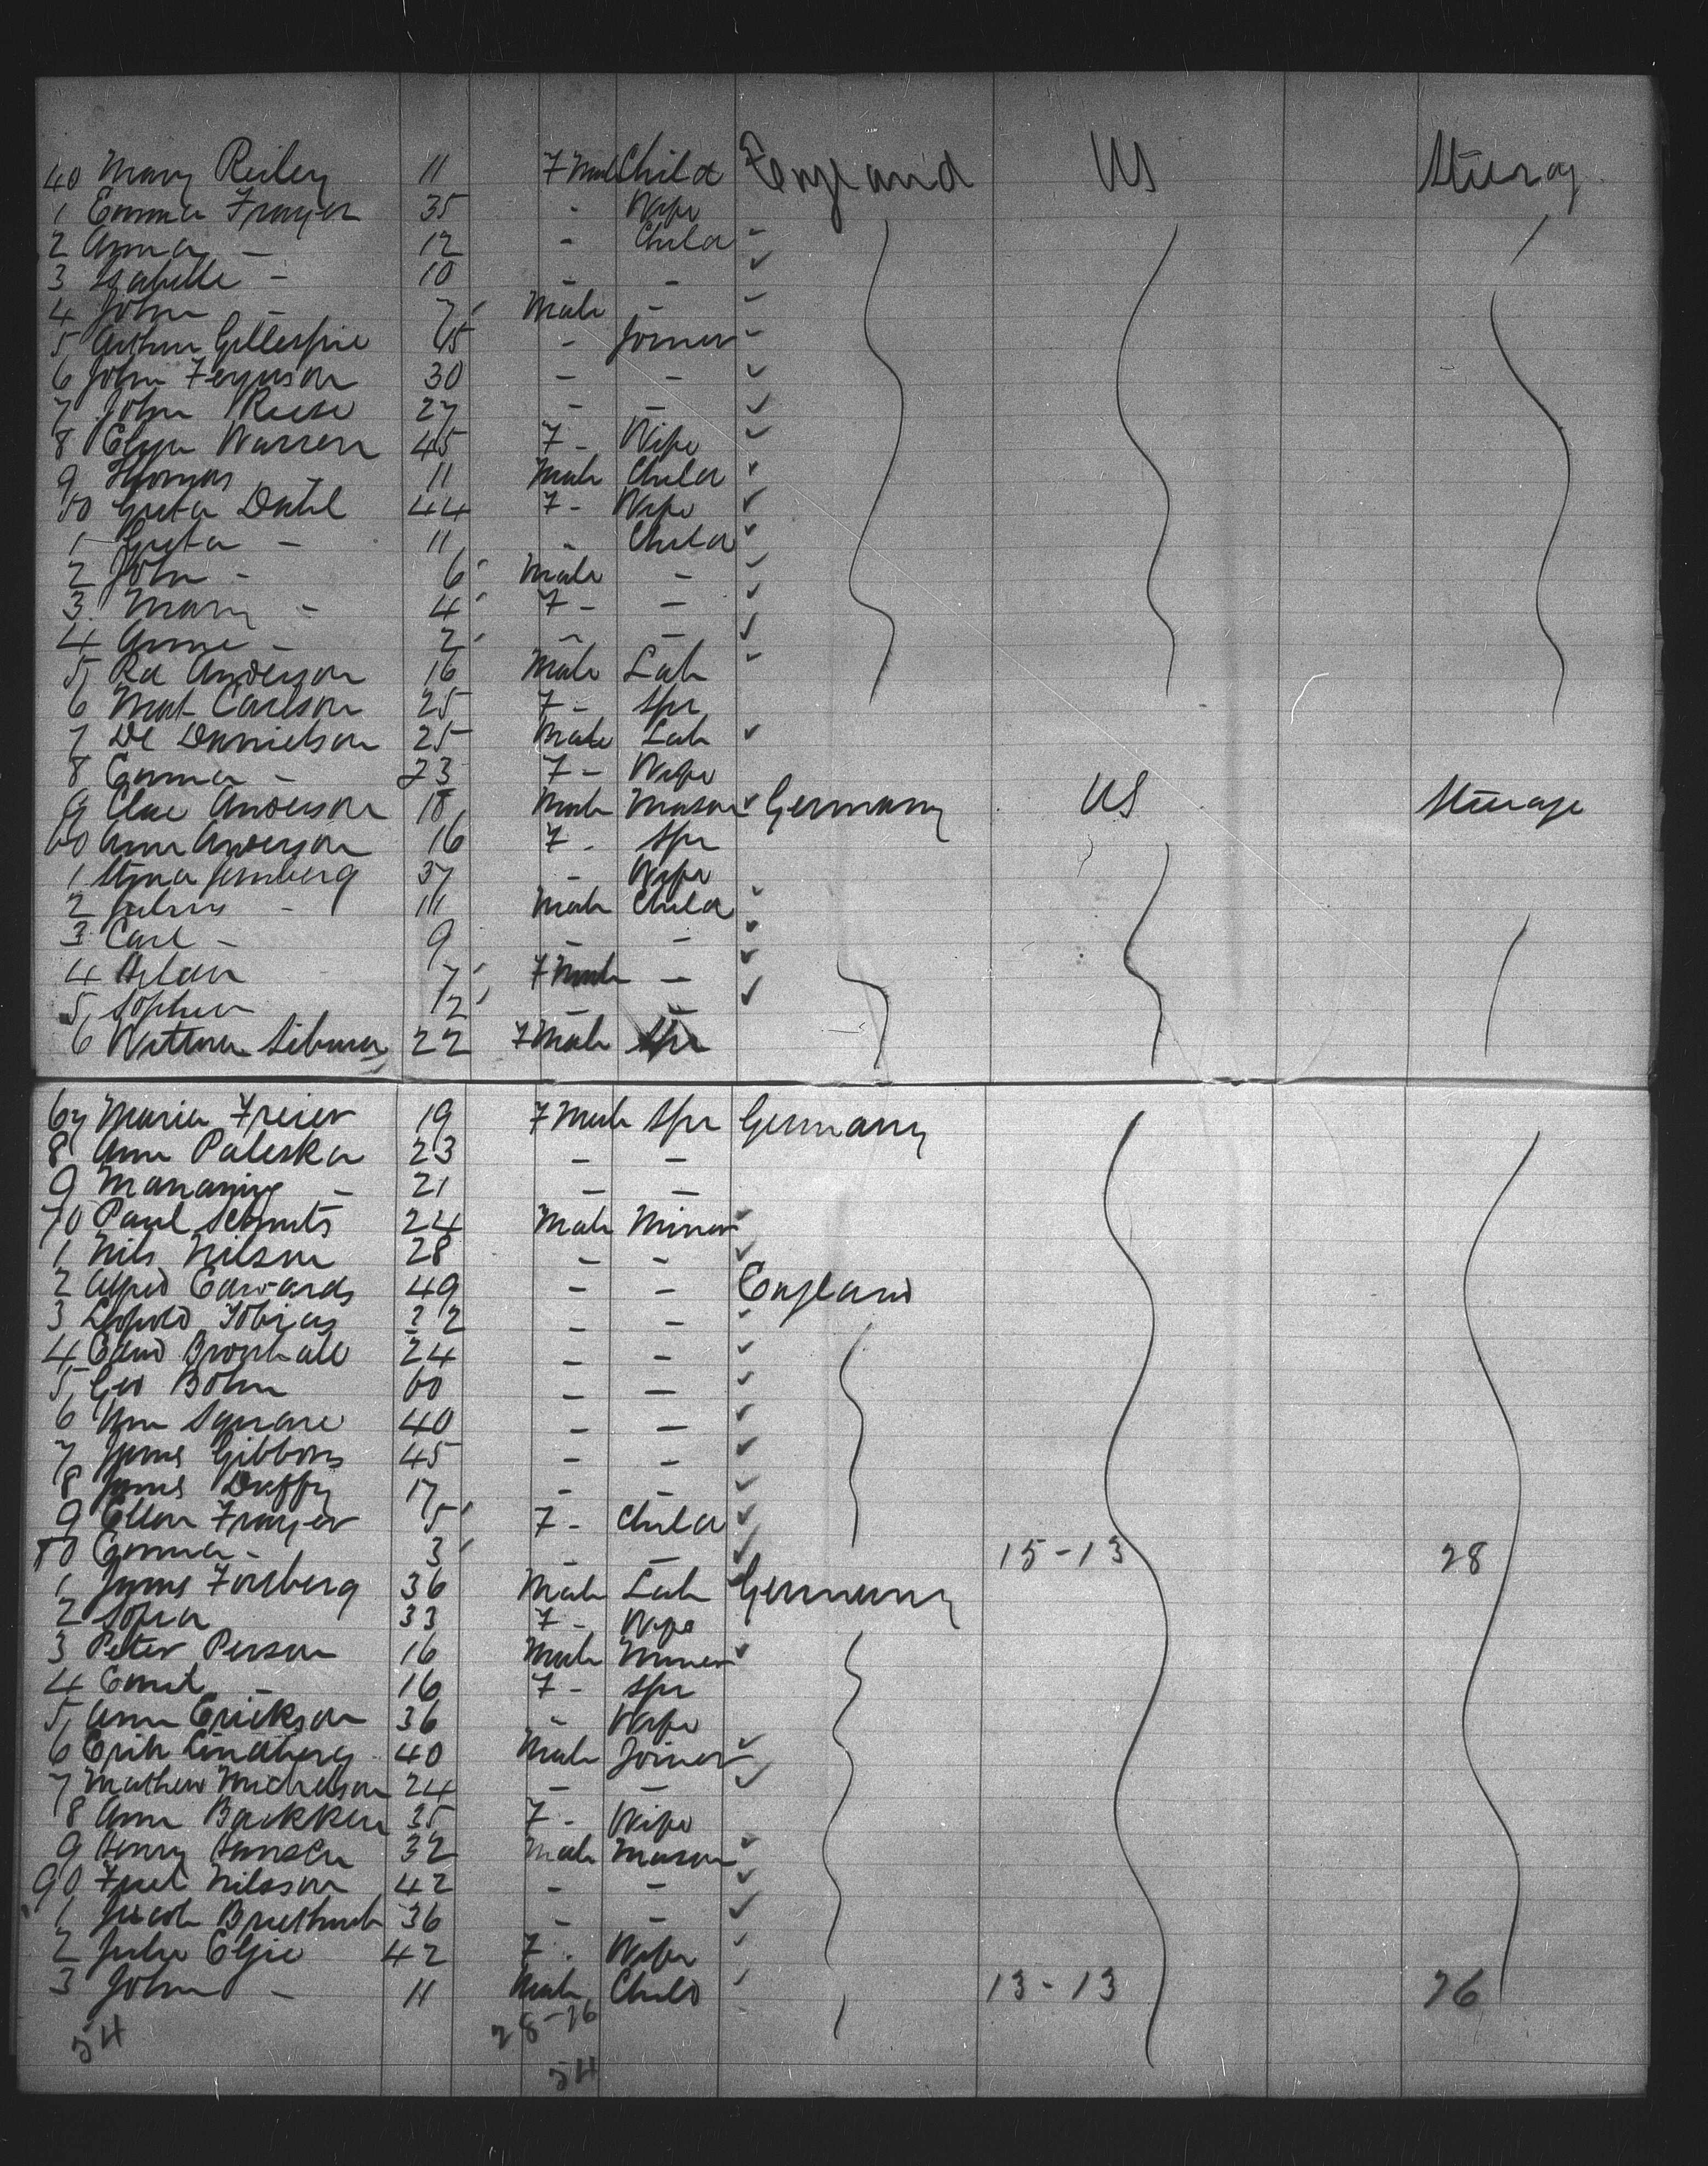 40 Mary Reiley 11 Fmal Child England US Steerag
1 Emma Frayer 35 " Wife
2 Anna - 12 - Child
3 Isabelle - 10 - -
4 John - 7 Male -
5 Arthur Gillespie 45 - Joiner
6 John Ferguson 30 - -
7 John Reese 27 - -
8 Eliza Warren 45 F - Wife
9 Thomas - 11 Male Child
50 Greta Dahl 44 F - Wife
1 Greta - 11 - Child
2 John - 6 Male -
3 Mary - 4 F - -
4 Anne - 2 - -
5 Rd Anderson 16 Male Lab
6 Mat Carlson 25 F - Spr
7 De Danielson 25 Male Lab
8 Emma - 23 F - Wife
9 Anderson 18 Male Mason Germany US Steerage
60 Ann Anderson 16 F - Spr
1 Stina 37 - Wife
2 Julius - 11 Male Child
3 Carl - 9 - -
4 7 Fmale -
5 Sophia 12 - -
6 22 Fmale Spr
67 Maria Freier 19 Fmale Spr Germany
8 Ann Paleska 23 - -
9 - 21 - -
70 Paul Schmits 24 Male Miner
1 Nils Nilson 28 - -
2 Alfred Edwards 49 - - England
3 Leopold Tobias 22 - -
4 24 - -
5 Geo Bohn 60 - -
6 Wm Square 40 - -
7 James Gibbons 45 - -
8 James Duffy 17 - -
9 Ellen Frayer 5 F - Child
80 Emma - 3 - - 15-13 28
1 James Forsberg 36 Male Lab Germany
2 Sofia 33 F - Wife
3 Peter Person 16 Male Miner
4 - 16 F - Spr
5 Ann Erickson 36 - Wife
6 Erik Lindberg 40 Male Joiner
7 Mathew Michelson 24 - -
8 Ann Backken 35 F - Wife
9 Henry Hansen 32 Male Mason
90 Nilsson 42 - -
1 Jacob 36 - -
2 Julia 42 F - Wife
3 John - 11 Male Child 13-13 26
54 28-26
54